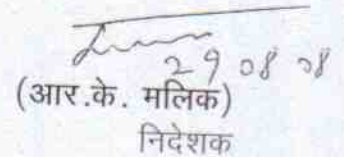 29 08 08
(आर.के. मलिक)
निदेशक